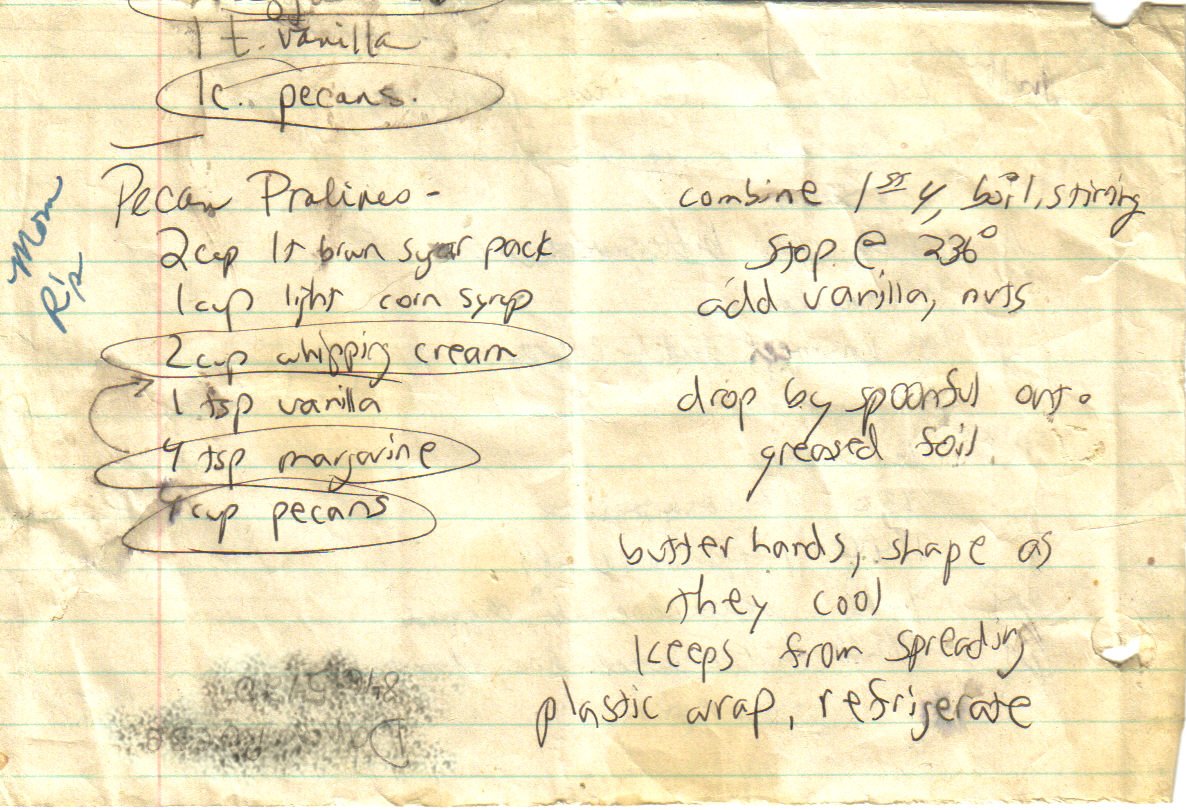 1 t. vanilla
1c. pecans.
Mom
R's
Pecan Pralines -
2 cup lt brwn sugar pack
1 cup light corn syrup
2 cup whipping cream
1 tsp vanilla
4 tsp margarine
4 cup pecans
combine 1st 4, boil, stirring
stop @ 236°
add vanilla, nuts
drop by spoonful onto
greased foil
butter hands, shape as
they cool
keeps from spreading
plastic wrap, refrigerate